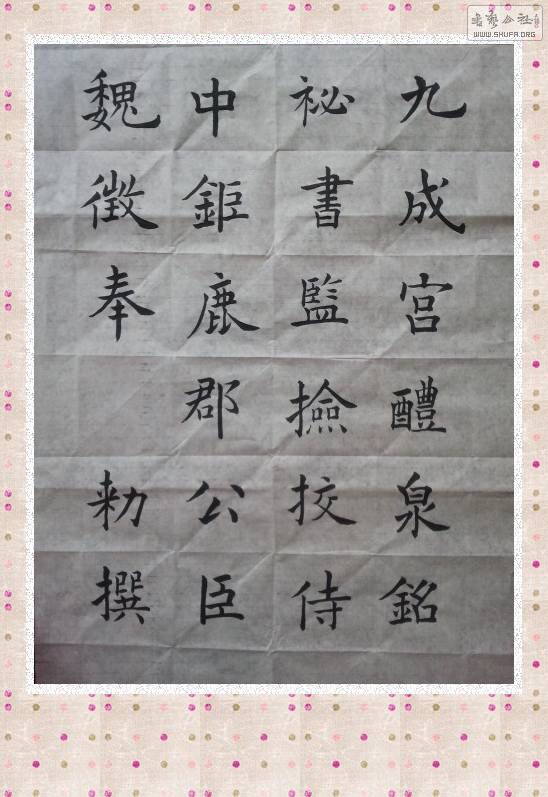 九成宮醴泉銘
祕書監撿挍侍
中鉅鹿郡公臣
魏徵奉 勑撰
WWW.SHUFA.ORG